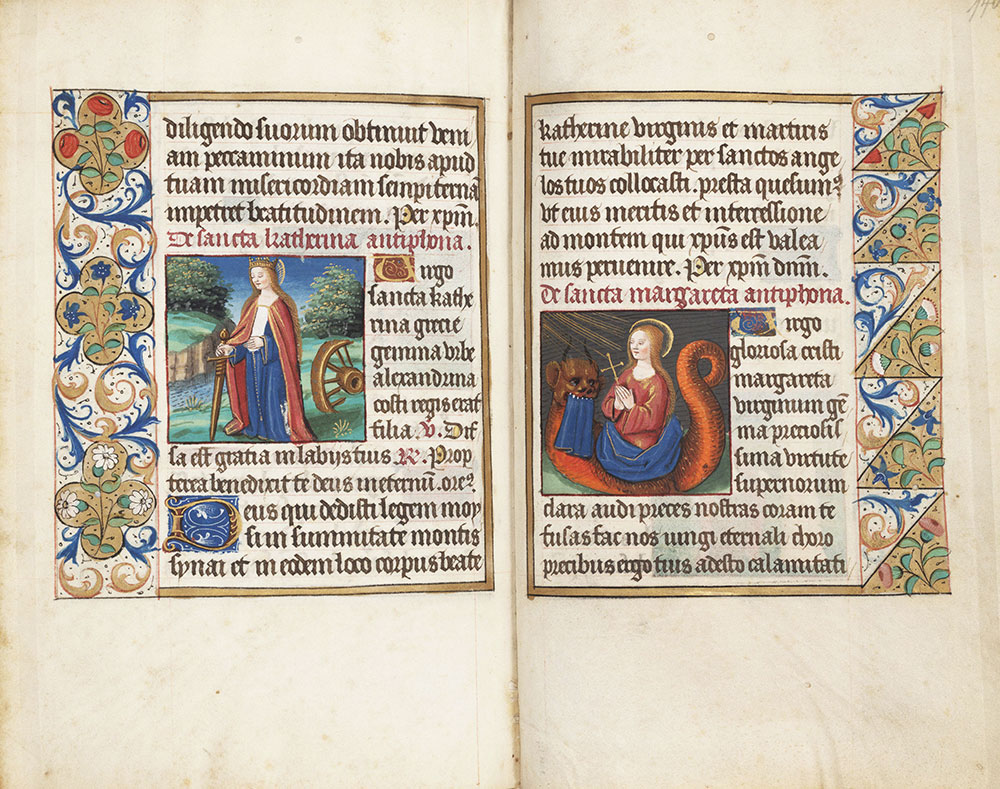 diligendo suorum obtinuit veni
am peccaminum ita nobis apud
tuam misericordiam sempiternā
impetret beatitudinem. Per xp̄m̄
De sancta katherina antiphona.
Virgo
sancta kathe
rina grecie
gemma urbe
alexandrina
costi regis erat
filia. V. Dif
sa est gratia in labijs tuis R. Prop
terea benedixit te deus ineternū. ore?
Deus qui dedisti legem moy
si in summitate montis
synai et in eodem loco corpus beate
katherine virginis et martiris
tue mirabiliter per sanctos ange
los tuos collocasti. presta quesum?
vt eius meritis et intercessione
ad montem qui xp̄us est valea
mus pervenire. Per xp̄m dn̄m.
De sancta margareta antiphona.
Virgo
gloriosa cristi
margareta
virginum gē
ma preciosis
sima virtute
supernorum
clara audi preces nostras coram te
fusas fac nos iungi eternali choro
precibus ergo tuis adesto calamitati